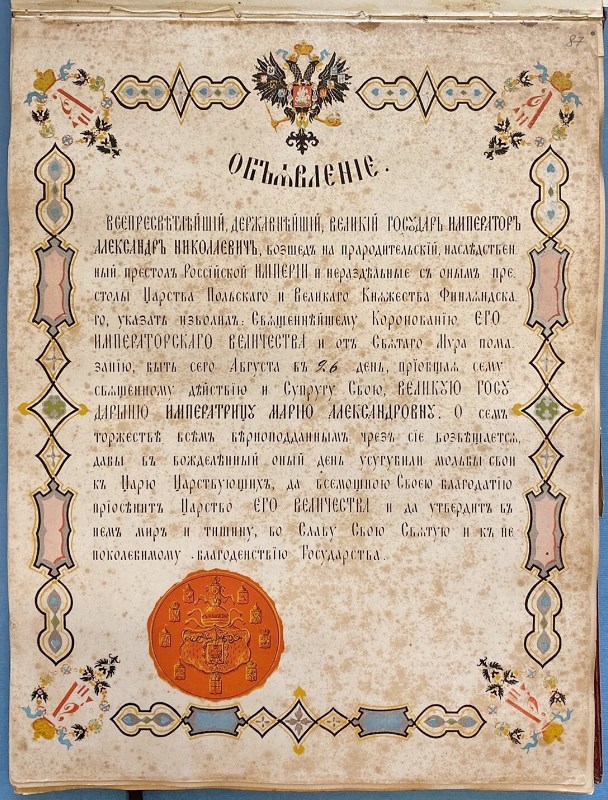 87
ОБЪѦВЛЕНІЕ.
ВСЕПРЕСВѢТЛѢЙШІЙ, ДЕРЖАВНѢЙШІЙ, ВЕЛИКІЙ ГОСУДАРЬ ИМПЕРАТОРЪ
АЛЕКСАНДРЪ НИКОЛАЕВИЧЪ, возшедъ на прародительскій, наслѣдствен
ный престолъ Россійской ИМПЕРІИ и нераздѣльные съ онымъ пре
столы Царства Польскаго и Великаго Кнѧжества Финлѧндска
го, указать изволилъ: Свѧщеннѣйшему Коронованію ЕГО
ИМПЕРАТОРСКАГО ВЕЛИЧЕСТВА и отъ Свѧтаго Мѵра пома
занію, быть сего Августа въ 26 день, пріобщаѧ сему
свѧщенному дѣйствію и Супругу Свою, ВЕЛИКУЮ ГОСУ
ДАРЫНЮ ИМПЕРАТРИЦУ МАРІЮ АЛЕКСАНДРОВНУ. О семъ
торжествѣ всѣмъ вѣрноподданнымъ чрезъ сіе возвѣщаетсѧ,
дабы въ вожделѣнный оный день усугубили мольбы свои
къ Царю Царствующихъ, да всемощною Своею благодатію
пріосѣнитъ Царство ЕГО ВЕЛИЧЕСТВА и да утвердитъ въ
немъ миръ и тишину, во Славу Свою Свѧтую и къ не
поколебимому благоденствію Государства.